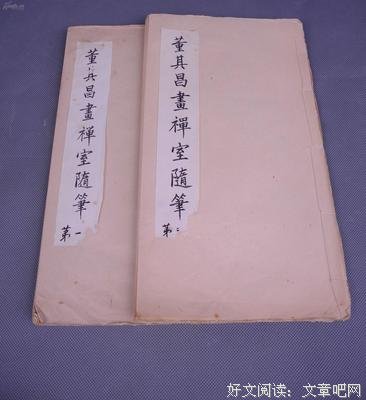 董其昌畫禪室隨筆
第一
董其昌畫禪室隨筆
第二
好文阅读：文章吧网